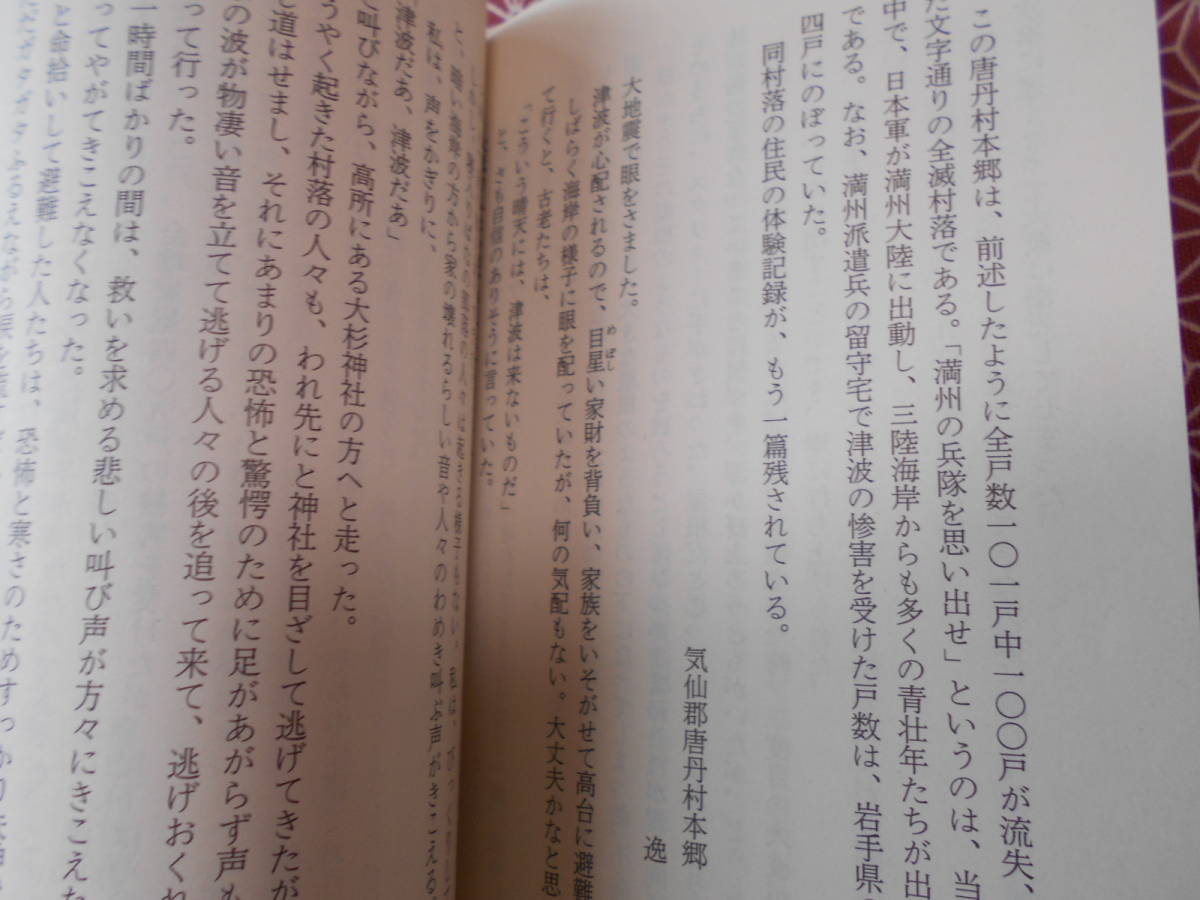 この唐丹村本郷は、前述したように全戸数一〇一戸中一〇〇戸が流失、
た文字通りの全滅村落である。「満州の兵隊を思い出せ」というのは、当
中で、日本軍が満州大陸に出動し、三陸海岸からも多くの青壮年たちが出
である。なお、満州派遣兵の留守宅で津波の惨害を受けた戸数は、岩手県
四戸にのぼっていた。
同村落の住民の体験記録が、もう一篇残されている。
気仙郡唐丹村本郷
逸
大地震で眼をさました。
津波が心配されるので、目星い家財を背負い、家族をいそがせて高台に避難
しばらく海岸の様子に眼を配っていたが、何の気配もない。大丈夫かなと思
て行くと、古老たちは、
「こういう晴天には、津波は来ないものだ」
と、さも自信のありそうに言っていた。
と、暗い海岸の方から家の壊れるらしい音や人々のわめき叫ぶ声がきこえる。
私は、声をかぎりに、
「津波だあ、津波だあ」
と叫びながら、高所にある大杉神社の方へと走った。
うやく起きた村落の人々も、われ先にと神社を目ざして逃げてきたが
道はせまし、それにあまりの恐怖と驚愕のために足があがらず声も
の波が物凄い音を立てて逃げる人々の後を追って来て、逃げおくれ
って行った。
一時間ばかりの間は、救いを求める悲しい叫び声が方々にきこえた
ってやがてきこえなくなった。
と命拾いして避難した人たちは、恐怖と寒さのためすっか
ガタガタふるえながら